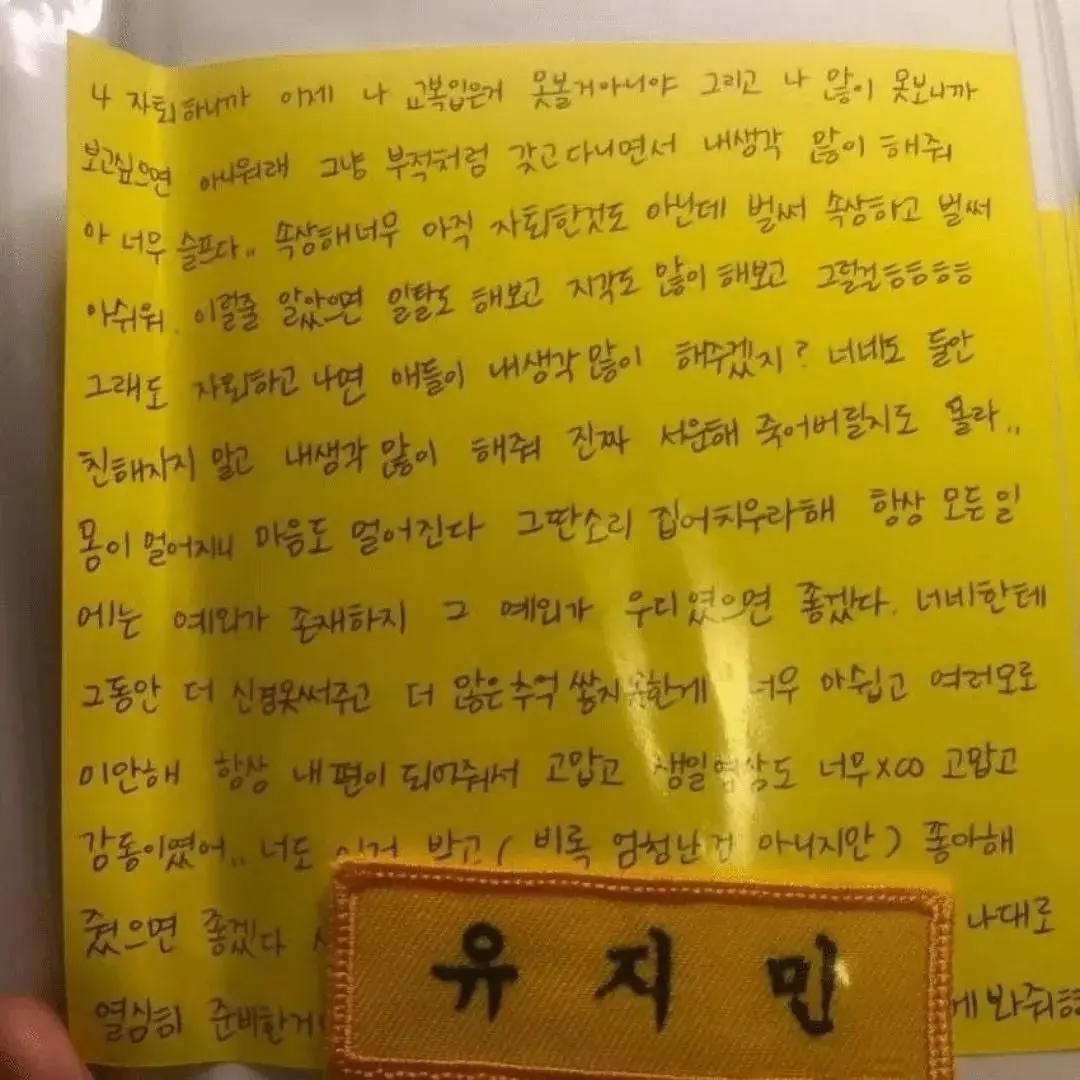 나 자퇴하니까 이제 나 교복입은거 못볼거아니야 그리고 나 많이 못보니까
보고싶으면 아쉬워래 그냥 부적처럼 갖고다니면서 내생각 많이 해줘
아 너무 슬프다.. 속상해너무 아직 자퇴한것도 아닌데 벌써 속상하고 벌써
아쉬워. 이럴줄 알았으면 일탈도 해보고 지각도 많이 해보고 그럴걸흥흥흥흥
그래도 자퇴하고 나면 애들이 내생각많이 해주겠지? 너네도 둘만
친해지지 말고 내생각 많이 해줘 진짜 서운해 죽어버릴지도 몰라..
몸이 멀어지니 마음도 멀어진다 그딴소리 집어치우라해 항상 모든일
에는 예외가 존재하지 그 예외가 우리였으면 좋겠다. 너네한테
그동안 더 신경못써주고 더 많은추억 쌓지못한게 너무 아쉽고 여러모로
미안해 항상 내편이 되어줘서 고맙고 생일영상도 너무xoo 고맙고
감동이였어.. 너도 이거 받고 ( 비록 엄청난건 아니지만 ) 좋아해
줬으면 좋겠다 나대로
열심히 준비한거 게봐줘
유지민